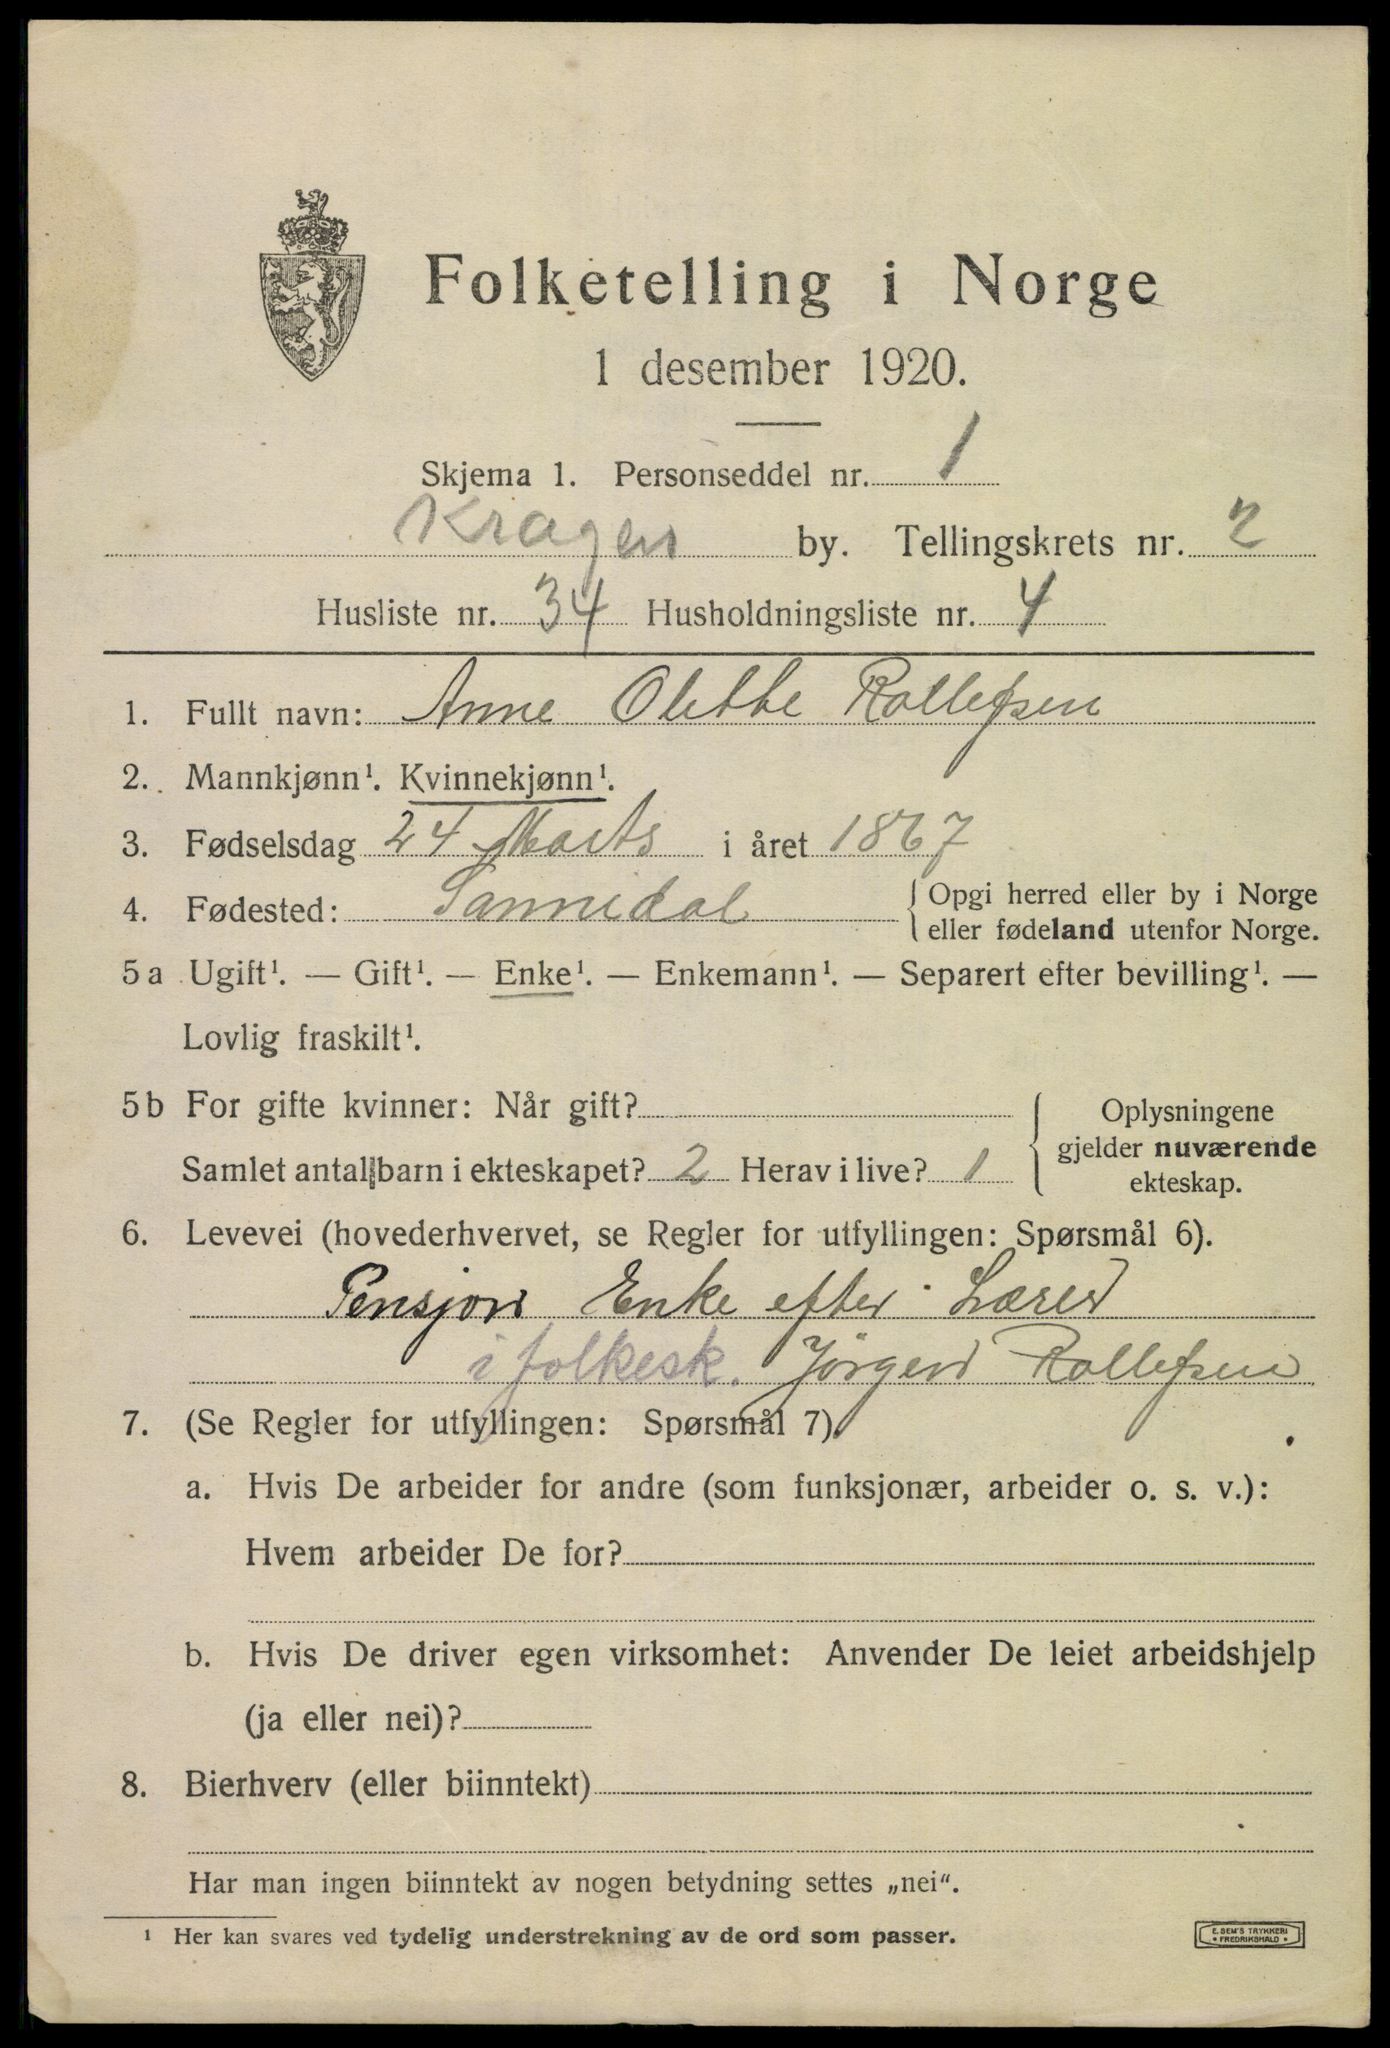 Folketelling i Norge
1 desember 1920.
Skjema 1. Personseddel nr. 1
Kragerø by. Tellingskrets nr. 2
Husliste nr. 34 Husholdningsliste nr. 4
1. Fullt navn: Anne Olette Rollefsen
2. Mannkjønn¹. Kvinnekjønn¹.
3. Fødselsdag 24 Marts i året 1867
4. Fødested: Sannidal { Opgi herred eller by i Norge
eller fødeland utenfor Norge.
5 a Ugift¹. — Gift¹. — Enke¹. — Enkemann¹. — Separert efter bevilling¹. —
Lovlig fraskilt¹.
5 b For gifte kvinner: Når gift?
Samlet antal barn i ekteskapet? 2 Herav i live? 1
{ Oplysningene
gjelder nuværende
ekteskap.
6. Levevei (hovederhvervet, se Regler for utfyllingen: Spørsmål 6).
Pensjon Enke efter Lærer
i folkesk. Jörgen Rollefsen
7. (Se Regler for utfyllingen: Spørsmål 7)
a. Hvis De arbeider for andre (som funksjonær, arbeider o. s. v.):
Hvem arbeider De for?
b. Hvis De driver egen virksomhet: Anvender De leiet arbeidshjelp
(ja eller nei)?
8. Bierhverv (eller biinntekt)
Har man ingen biinntekt av nogen betydning settes „nei“.
¹ Her kan svares ved tydelig understrekning av de ord som passer.
E. SEM'S TRYKKERI
• FREDRIKSHALD •